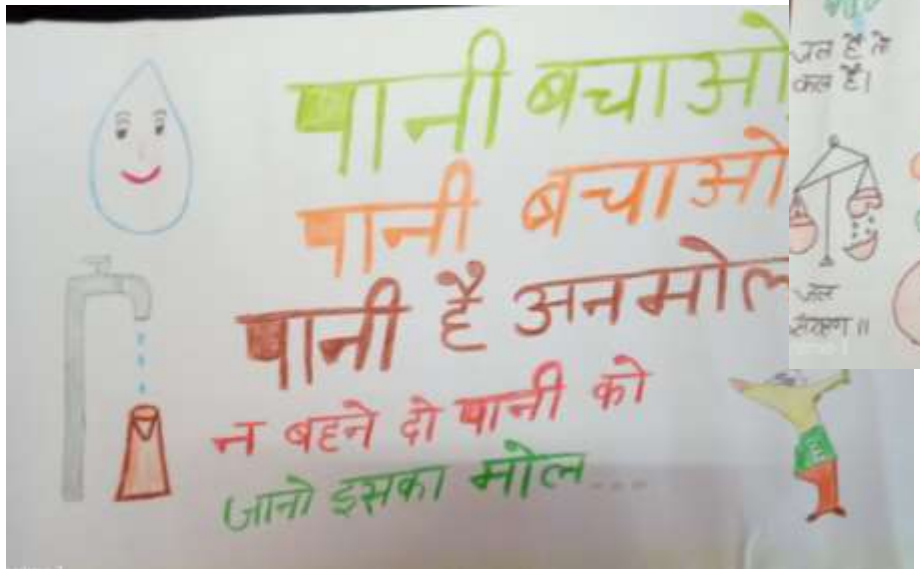 पानी बचाओ
पानी बचाओ
पानी है अनमोल
न बहने दो पानी को
जानो इसका मोल...
जल है तो
कल है।
जल
संरक्षण॥